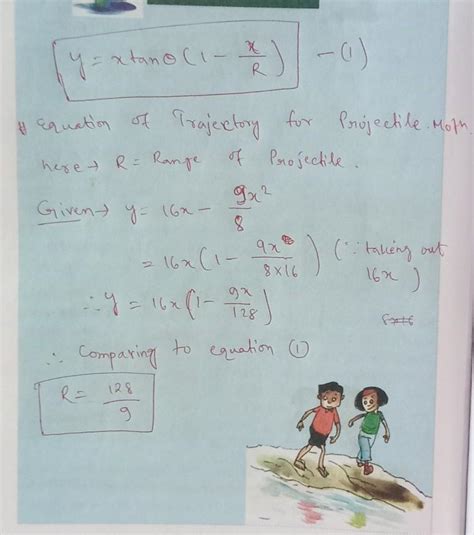 y = x tanθ (1 - x/R) - (1)
# Equation of Trajectory for Projectile Moth.
here → R = Range of Projectile.
Given → y = 16x - 9x²/8
= 16x (1 - 9x/8×16) (∵ taking out 16x)
∴ y = 16x (1 - 9x/128)
∴ Comparing to equation (1)
R = 128/9